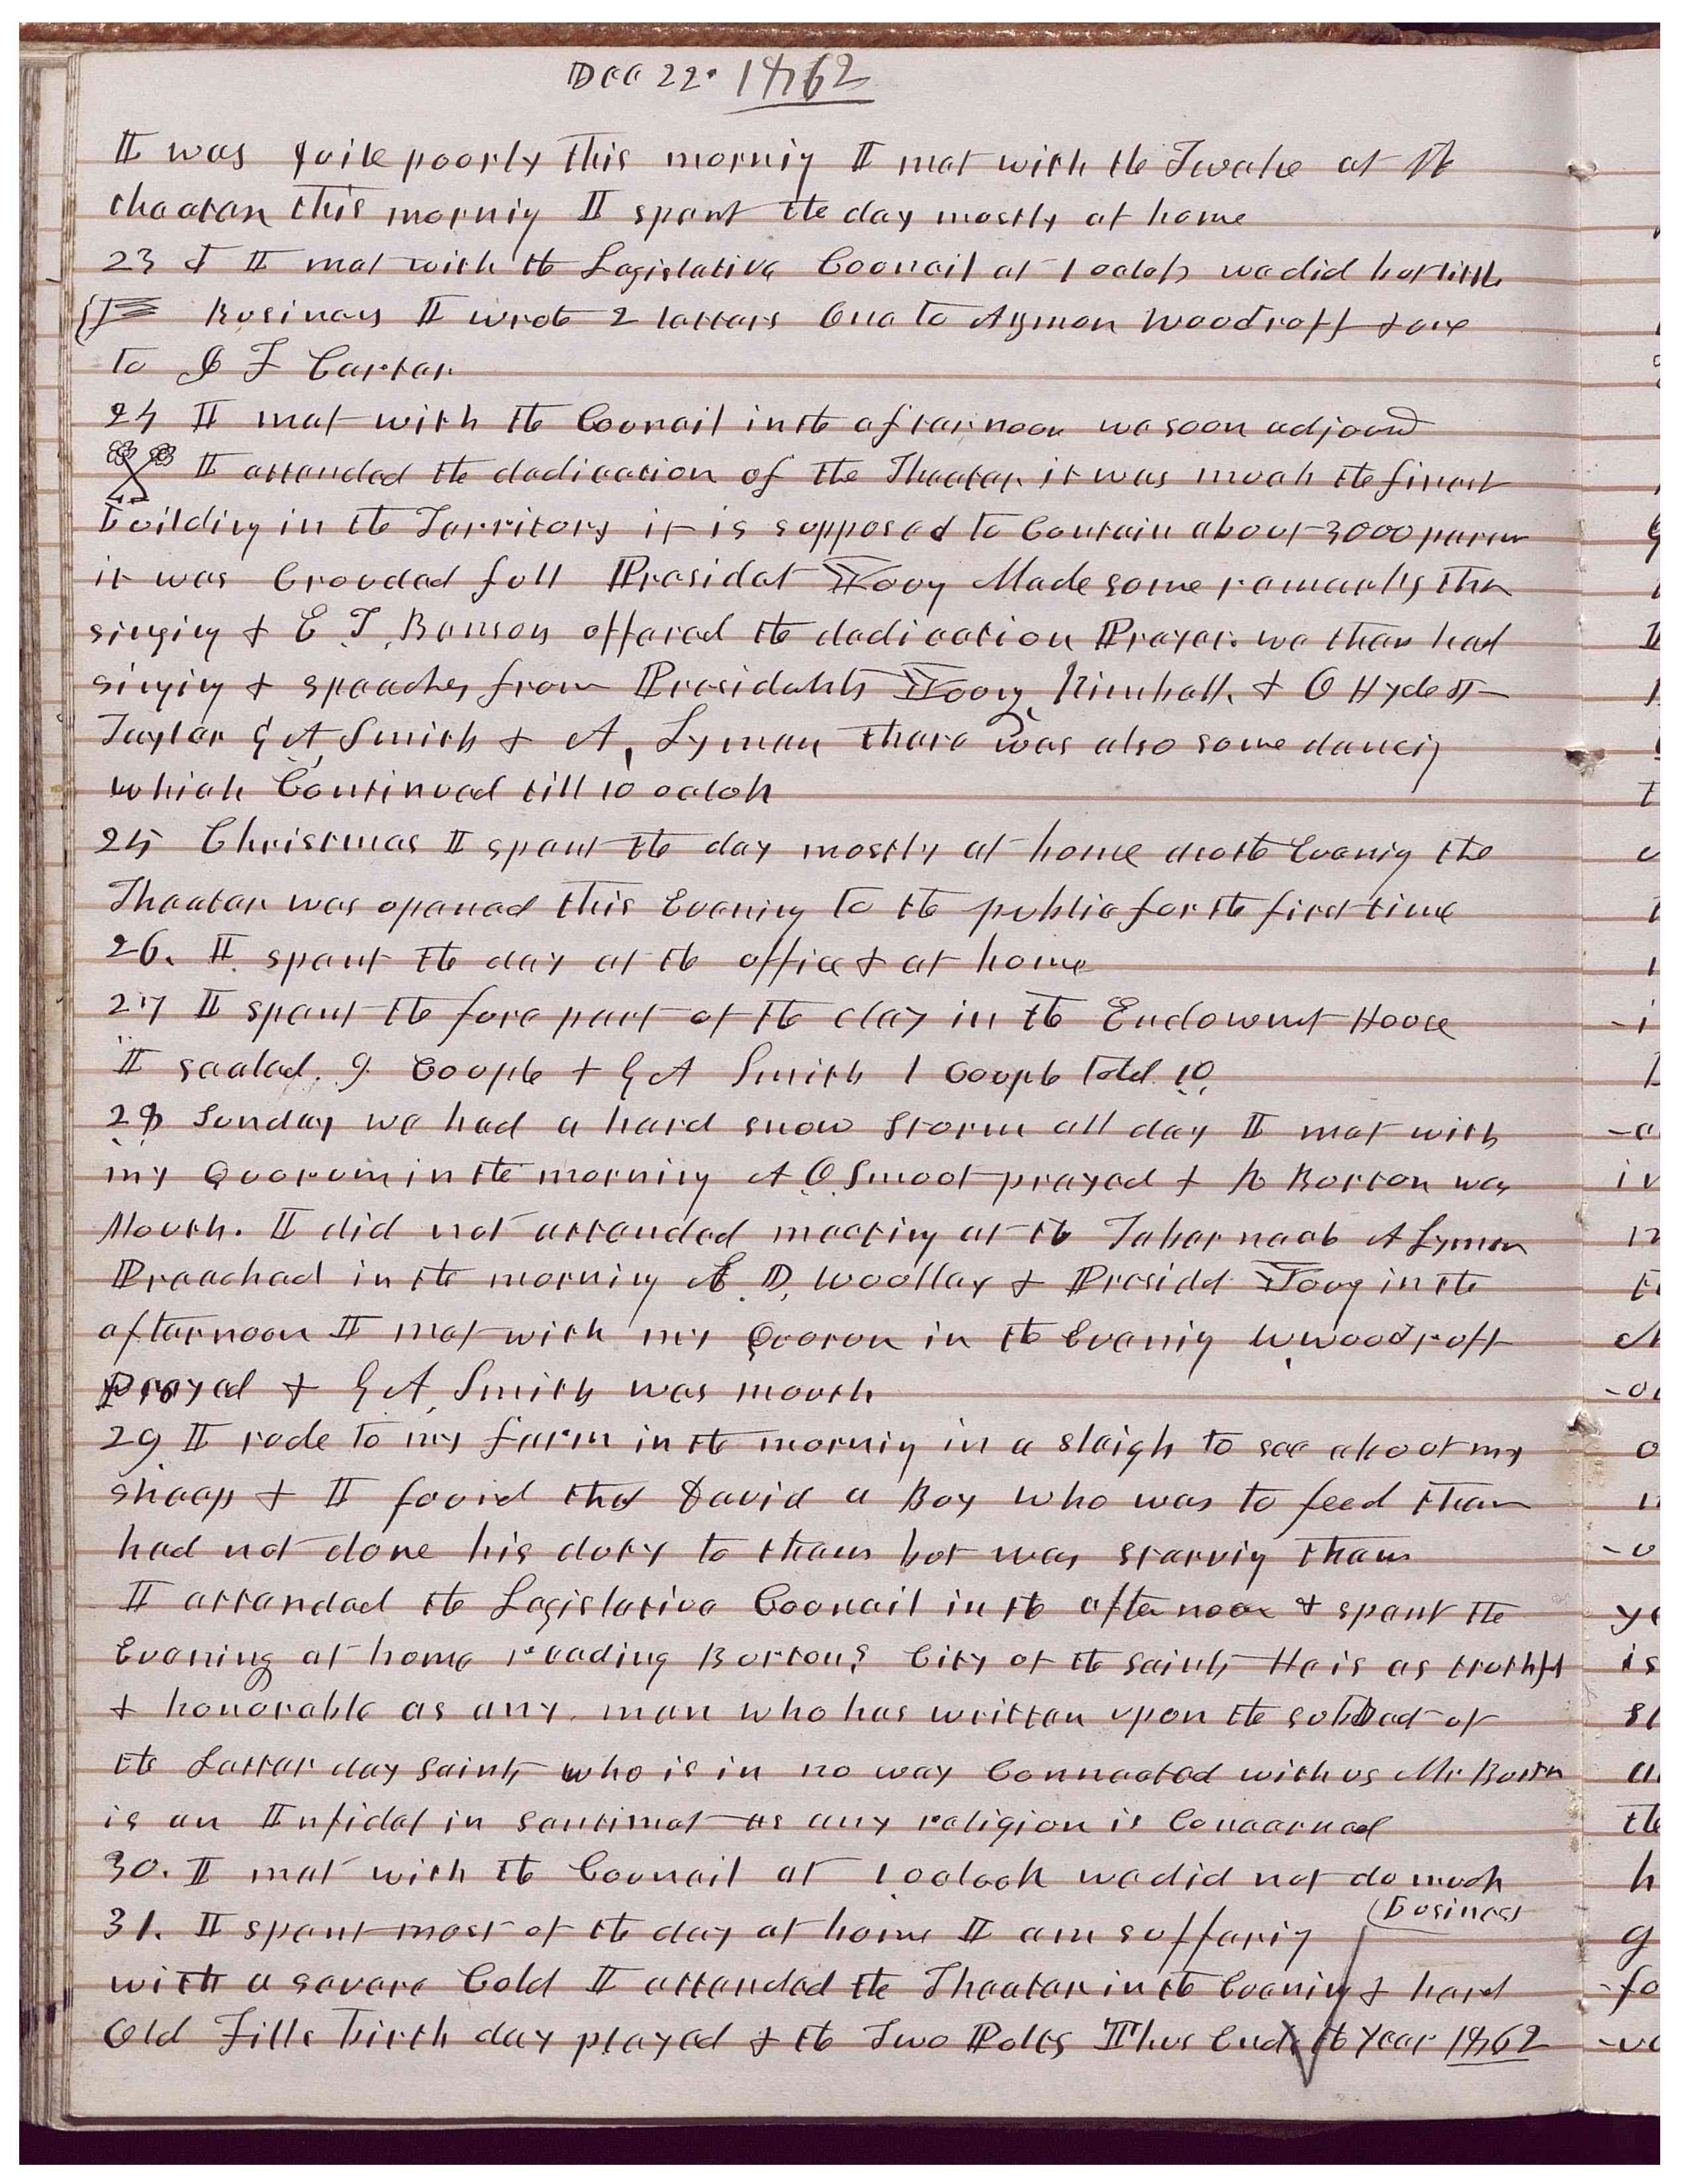 Dec 22. 1862
I was quite poorly this mornig I met with the Twelve at the
theater this mornig I spent the day mostly at home
23 & I met with the Legislative Council at 1 oclok we did but little
Business I wrote 2 letters One to Azmon Woodruff & one
to I F Carter
24 I met with the Council in the afternoon we soon adjournd
I attended the dedication of the Theater it was much the finest
building in the Territory it is supposed to Contain about 3000 person
it was Crouded full President Young Made some remarks then
singing & E T, Benson offered the dedication Prayer. we then had
singing & speaches from Presidents Young, Kimball, & O Hyde J
Taylor G A Smith & A, Lyman there was also some dancig
which Continued till 10 oclok
25 Christmas I spent the day mostly at home also the Evenig the
Theater was opened this Evening to the public for the first time
26. I spent the day at the office & at home
27 I spent the fore part of the day in the Endowmt House
I sealed 9 Couple & G A Smith 1 Couple Total 10
28 Sunday we had a hard snow storm all day I met with
my Quorum in the morning A O Smoot prayed & R Burton was
Mouth. I did not attended meeting at the Tabernacle A Lyman
Preached in the morning E. D. Woolley & Presidt Young in the
afternoon I met with my Quorum in the Evenig W Woodruff
Prayed & G A Smith was mouth
29 I rode to my farm in the mornig in a sleigh to see about my
sheep & I found that David a Boy who was to feed them
had not done his duty to them but was starvig them
I attended the Legislative Council in the afternoon & spent the
Evening at home reading Burtons City of the Saints He is as truthful
& honorable as any man who has written upon the subject of
the Latter day Saints who is in no way Connected with us Mr Burton
is an Infidel in sentimet as any religion is Concerned
30. I met with the Council at 1 oclock we did not do much
(business
31. I spent most of the day at home I am sufferig
with a severe Cold I attended the Theater in the Evening & hard
Old Fills birth day played & the Two Polts Thus Ends the Year 1862